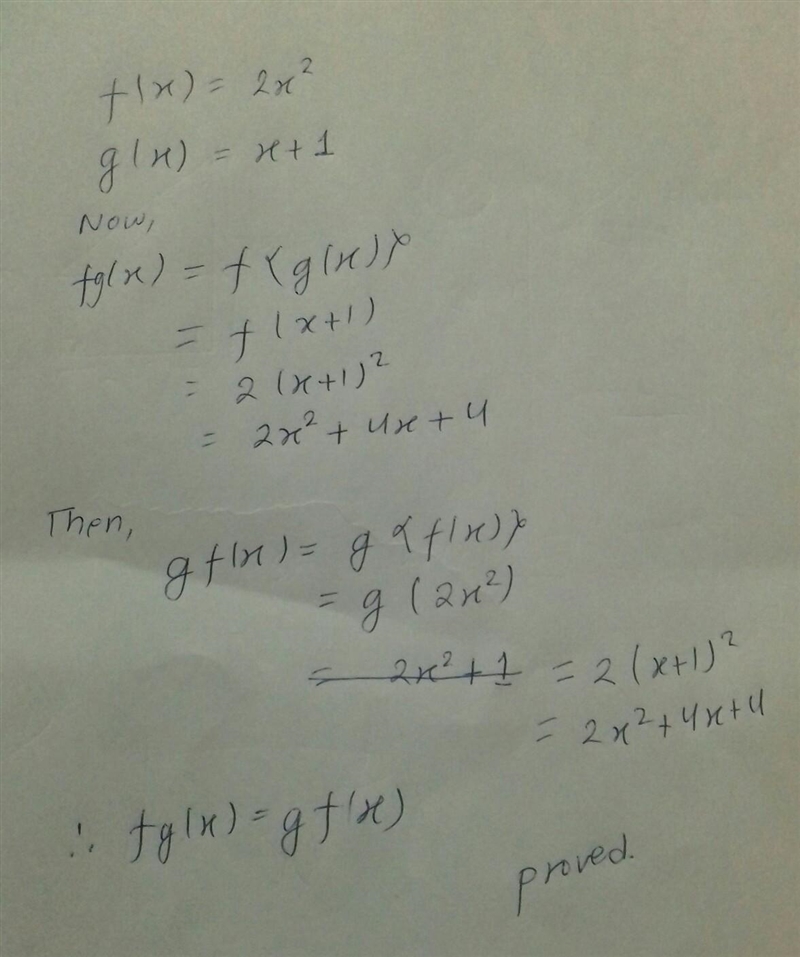 f(x) = 2x²
g(x) = x+1
Now,
fg(x) = f{g(x)}
= f(x+1)
= 2(x+1)²
= 2x² + 4x + 4
Then,
gf(x) = g{f(x)}
= g(2x²)
= 2x² + 1 = 2(x+1)²
= 2x² + 4x + 4
∴ fg(x) = gf(x)
proved.